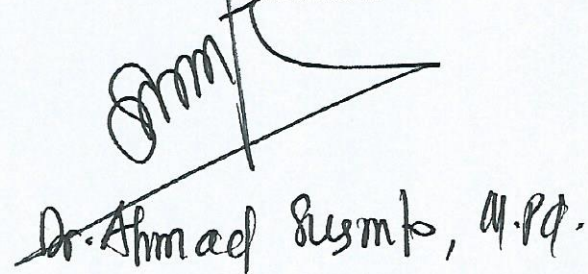 Dr. Ahmad Susmto, M.Pd.